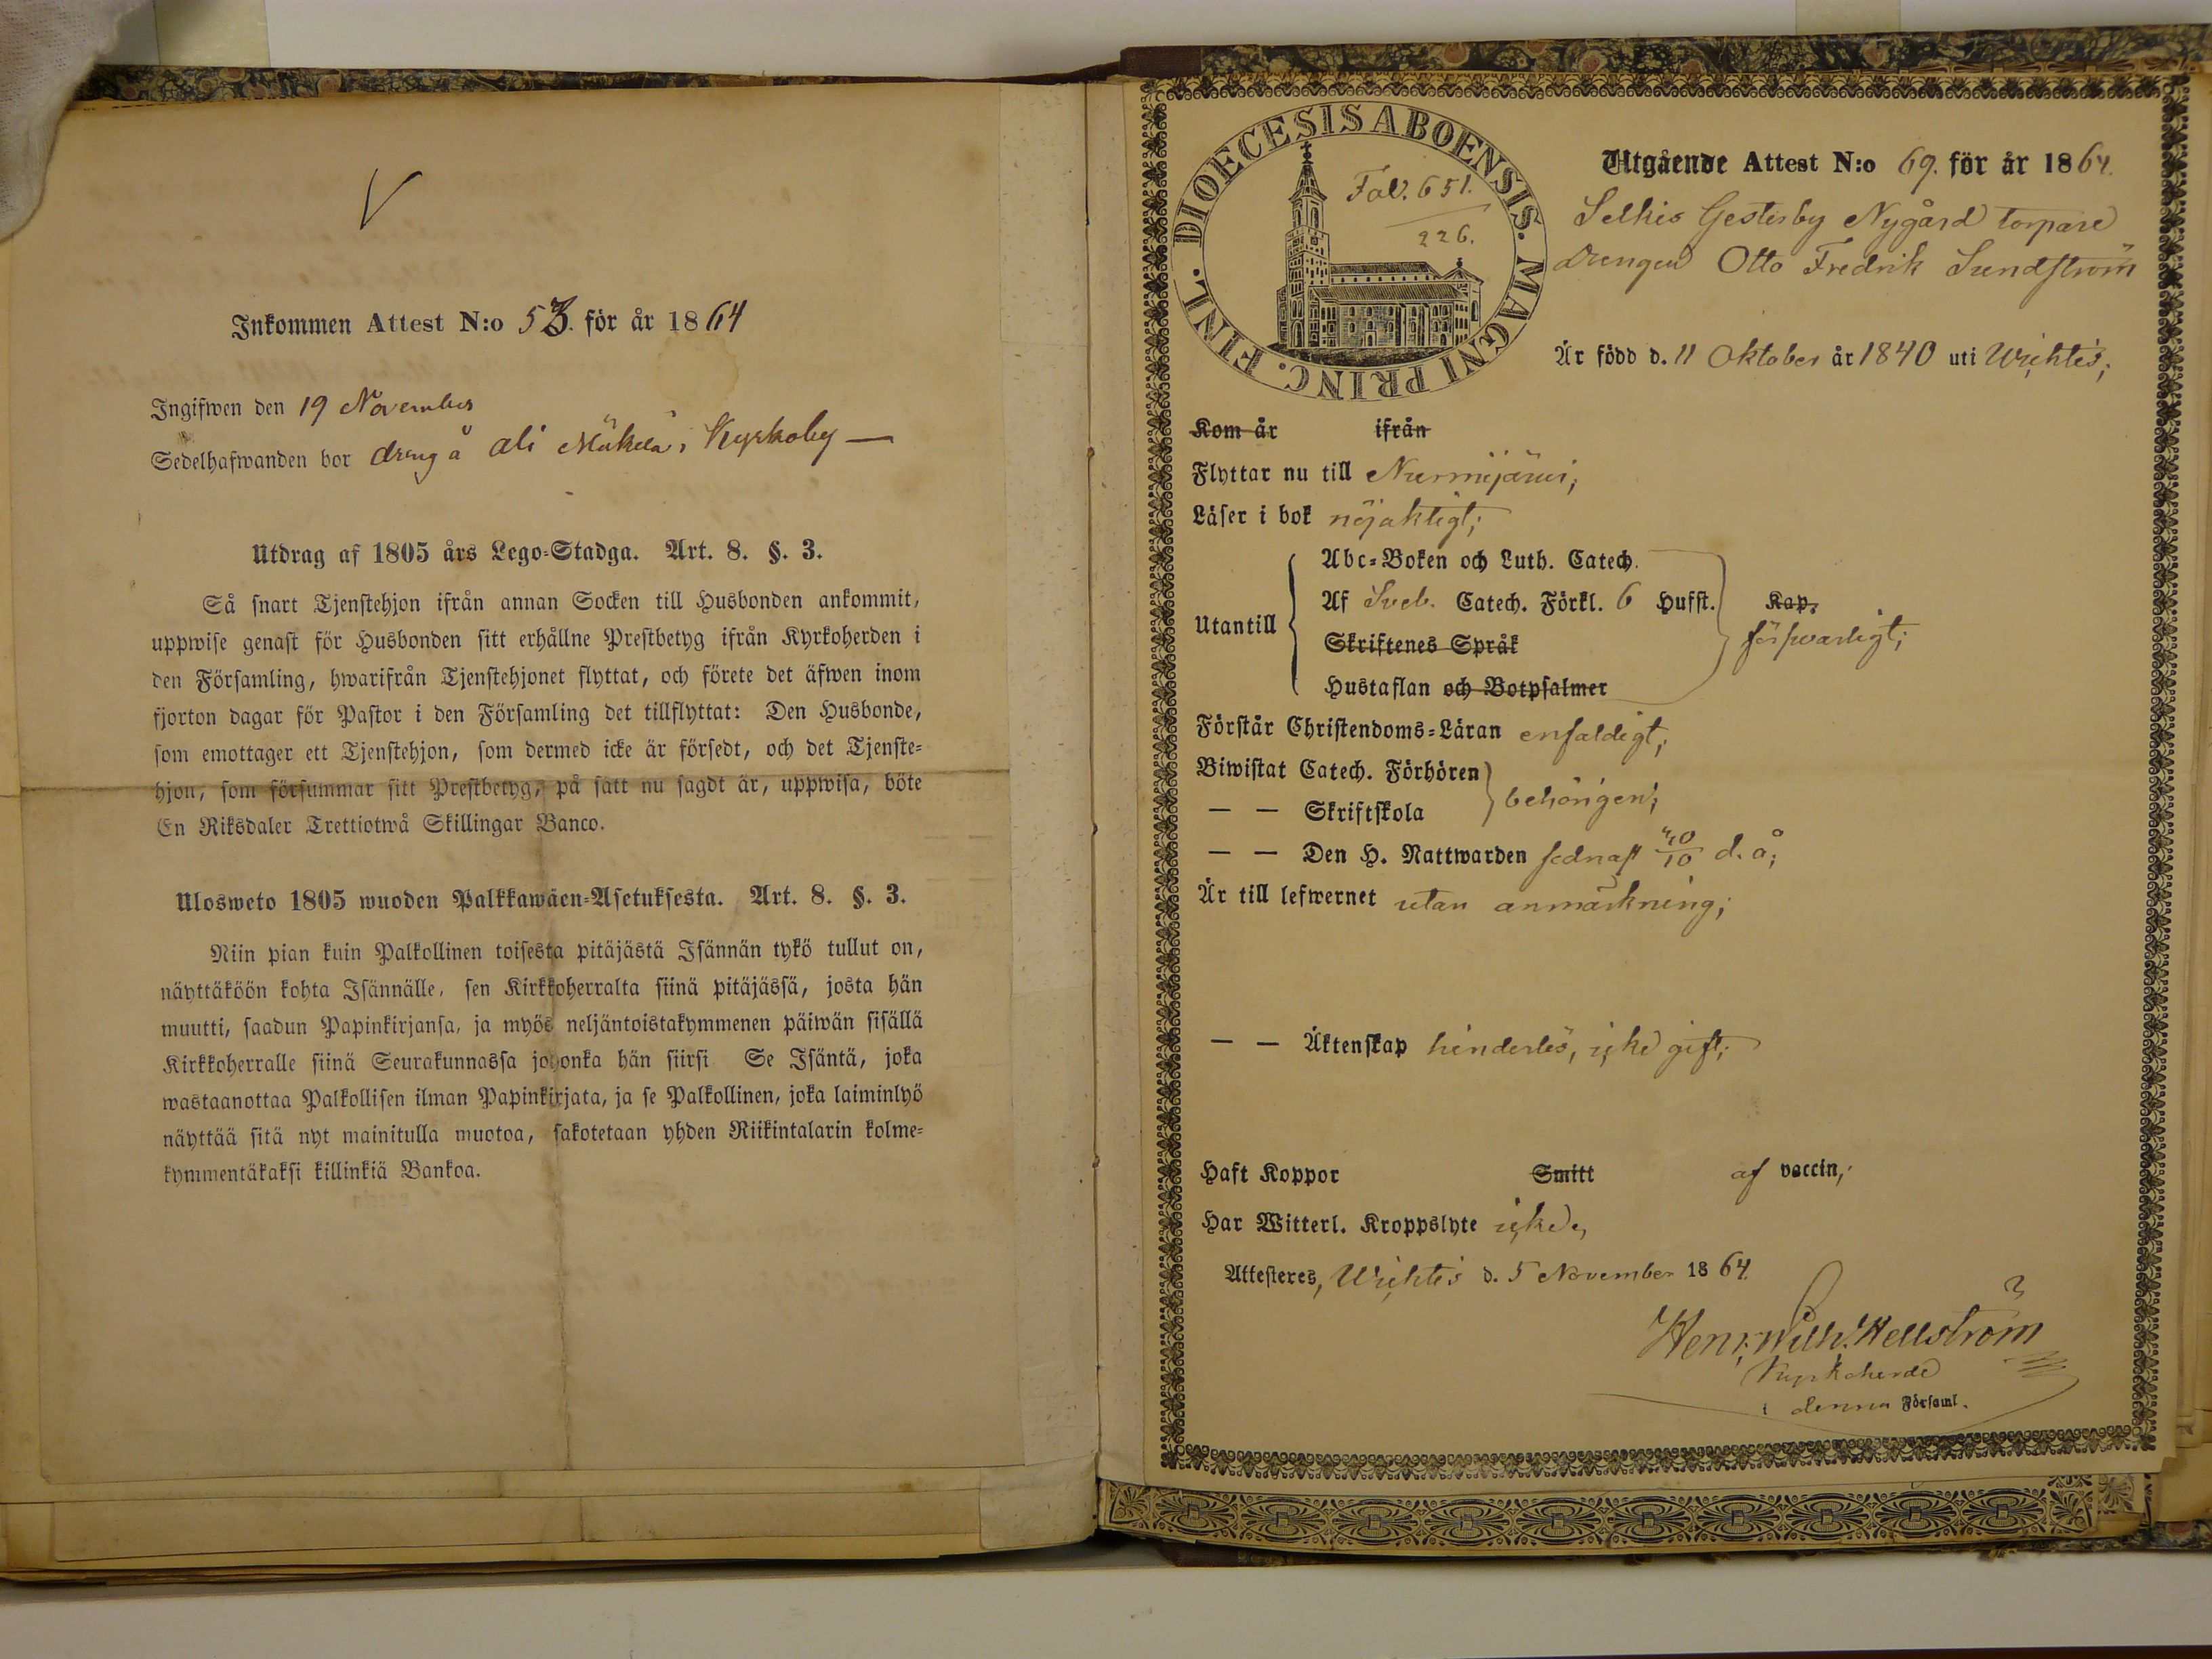 Inkommen Attest N:o 53. för år 1864
Ingifwen den 19 November
Sedelhafwanden bor dreng å Ali Mäkelä i Kyrkoby —
Utdrag af 1805 års Lego-Stadga. Art. 8. §. 3.
Så snart Tjenstehjon ifrån annan Socken till Husbonden ankommit,
uppwise genast för Husbonden sitt erhållne Prestbetyg ifrån Kyrkoherden i
den Församling, hwarifrån Tjenstehjonet flyttat, och förete det äfwen inom
fjorton dagar för Pastor i den Församling det tillflyttat: Den Husbonde,
som emottager ett Tjenstehjon, som dermed icke är försedt, och det Tjenste-
hjon, som försummar sitt Prestbetyg, på sätt nu sagdt är, uppwisa, böte
En Riksdaler Trettiotwå Skillingar Banco.
Ulosweto 1805 wuoden Palkkawäen-Asetuksesta. Art. 8. §. 3.
Niin pian kuin Palkollinen toisesta pitäjästä Isännän tykö tullut on,
näyttäköön kohta Isännälle, sen Kirkkoherralta siinä pitäjässä, josta hän
muutti, saadun Papinkirjansa, ja myös neljäntoistakymmenen päiwän sisällä
Kirkkoherralle siinä Seurakunnassa johonka hän siirsi Se Isäntä, joka
wastaanottaa Palkollisen ilman Papinkirjata, ja se Palkollinen, joka laiminlyö
näyttää sitä nyt mainitulla muotoa, sakotetaan yhden Riikintalarin kolme-
kymmentäkaksi killinkiä Bankoa.
DIOECESIS ABOENSIS. MAGNI PRINC. FINL.
Fol. 651.
226.
Utgående Attest N:o 69. för år 1864.
Selkis Gestesby Nygård torpare
drengen Otto Fredrik Sundström
Är född d. 11 Oktober år 1840 uti Wichtis;
Kom år ifrån
Flyttar nu till Nurmijärwi;
Läser i bok nöjaktigt;
Utantill
Abc-Boken och Luth. Catech.
Af Sveb. Catech. Förkl. 6 Hufst. Kap.
Skriftenes Språk
försvarligt;
Hustaflan och Botpsalmer
Förstår Christendoms-Läran enfaldigt;
Biwistat Catech. Förhören
— — Skriftskola
behörigen;
— — Den H. Nattwarden sednast d. å;
Är till lefwernet utan anmärkning;
— — Äktenskap hinderlös, icke gift;
Haft Koppor Smitt af vaccin;
Har Witterl. Kroppslyte icke,
Attesteres, Wichtis d. 5 November 1864.
Henr. Wilh. Hellström
Kyrkoherde
i denna Församl.